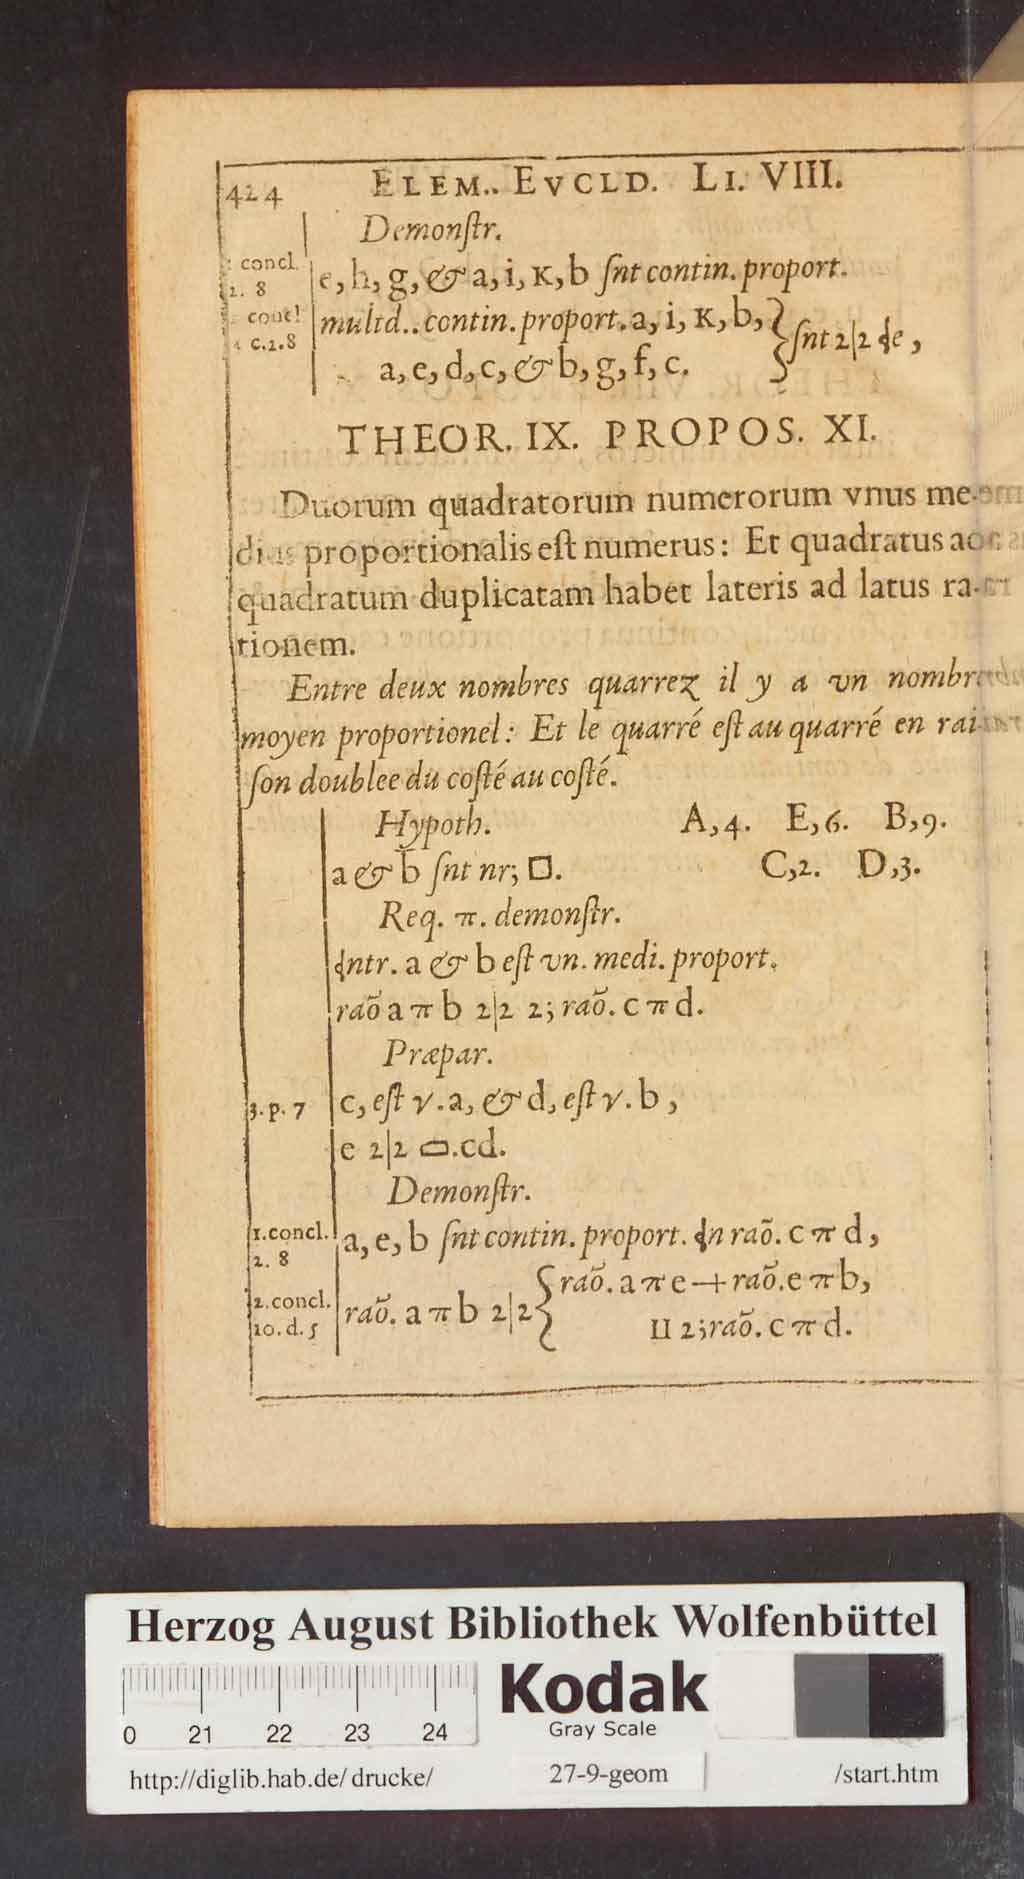 424 ELEM.. EVCLD. LI. VIII.
Demonſtr.
concl. e, h, g, & a, i, K, b ſnt contin. proport.
2. 8
concl multd.. contin. proport. a, i, K, b, } ſnt 2|2 đe,
c.2.8
a, e, d, c, & b, g, f, c.
THEOR. IX. PROPOS. XI.
Duorum quadratorum numerorum vnus me-
dius proportionalis eſt numerus: Et quadratus ad
quadratum duplicatam habet lateris ad latus ra-
tionem.
Entre deux nombres quarrez il y a vn nombre
moyen proportionel: Et le quarré eſt au quarré en rai-
ſon doublee du coſté au coſté.
Hypoth. A,4. E,6. B,9.
a & b ſnt nr; □. C,2. D,3.
Req. π. demonſtr.
đntr. a & b eſt vn. medi. proport.
raõ a π b 2|2 2; raõ. c π d.
Præpar.
3. p. 7 c, eſt γ. a, & d, eſt γ. b,
e 2|2 ▭.cd.
Demonſtr.
1.concl. a, e, b ſnt contin. proport. đn raõ. c π d,
2. 8
2.concl. raõ. a π b 2|2 { raõ. a π e + raõ. e π b,
10. d. 5 II 2; raõ. c π d.
Herzog August Bibliothek Wolfenbüttel
0 21 22 23 24
Kodak
Gray Scale
http://diglib.hab.de/drucke/ 27-9-geom /start.htm